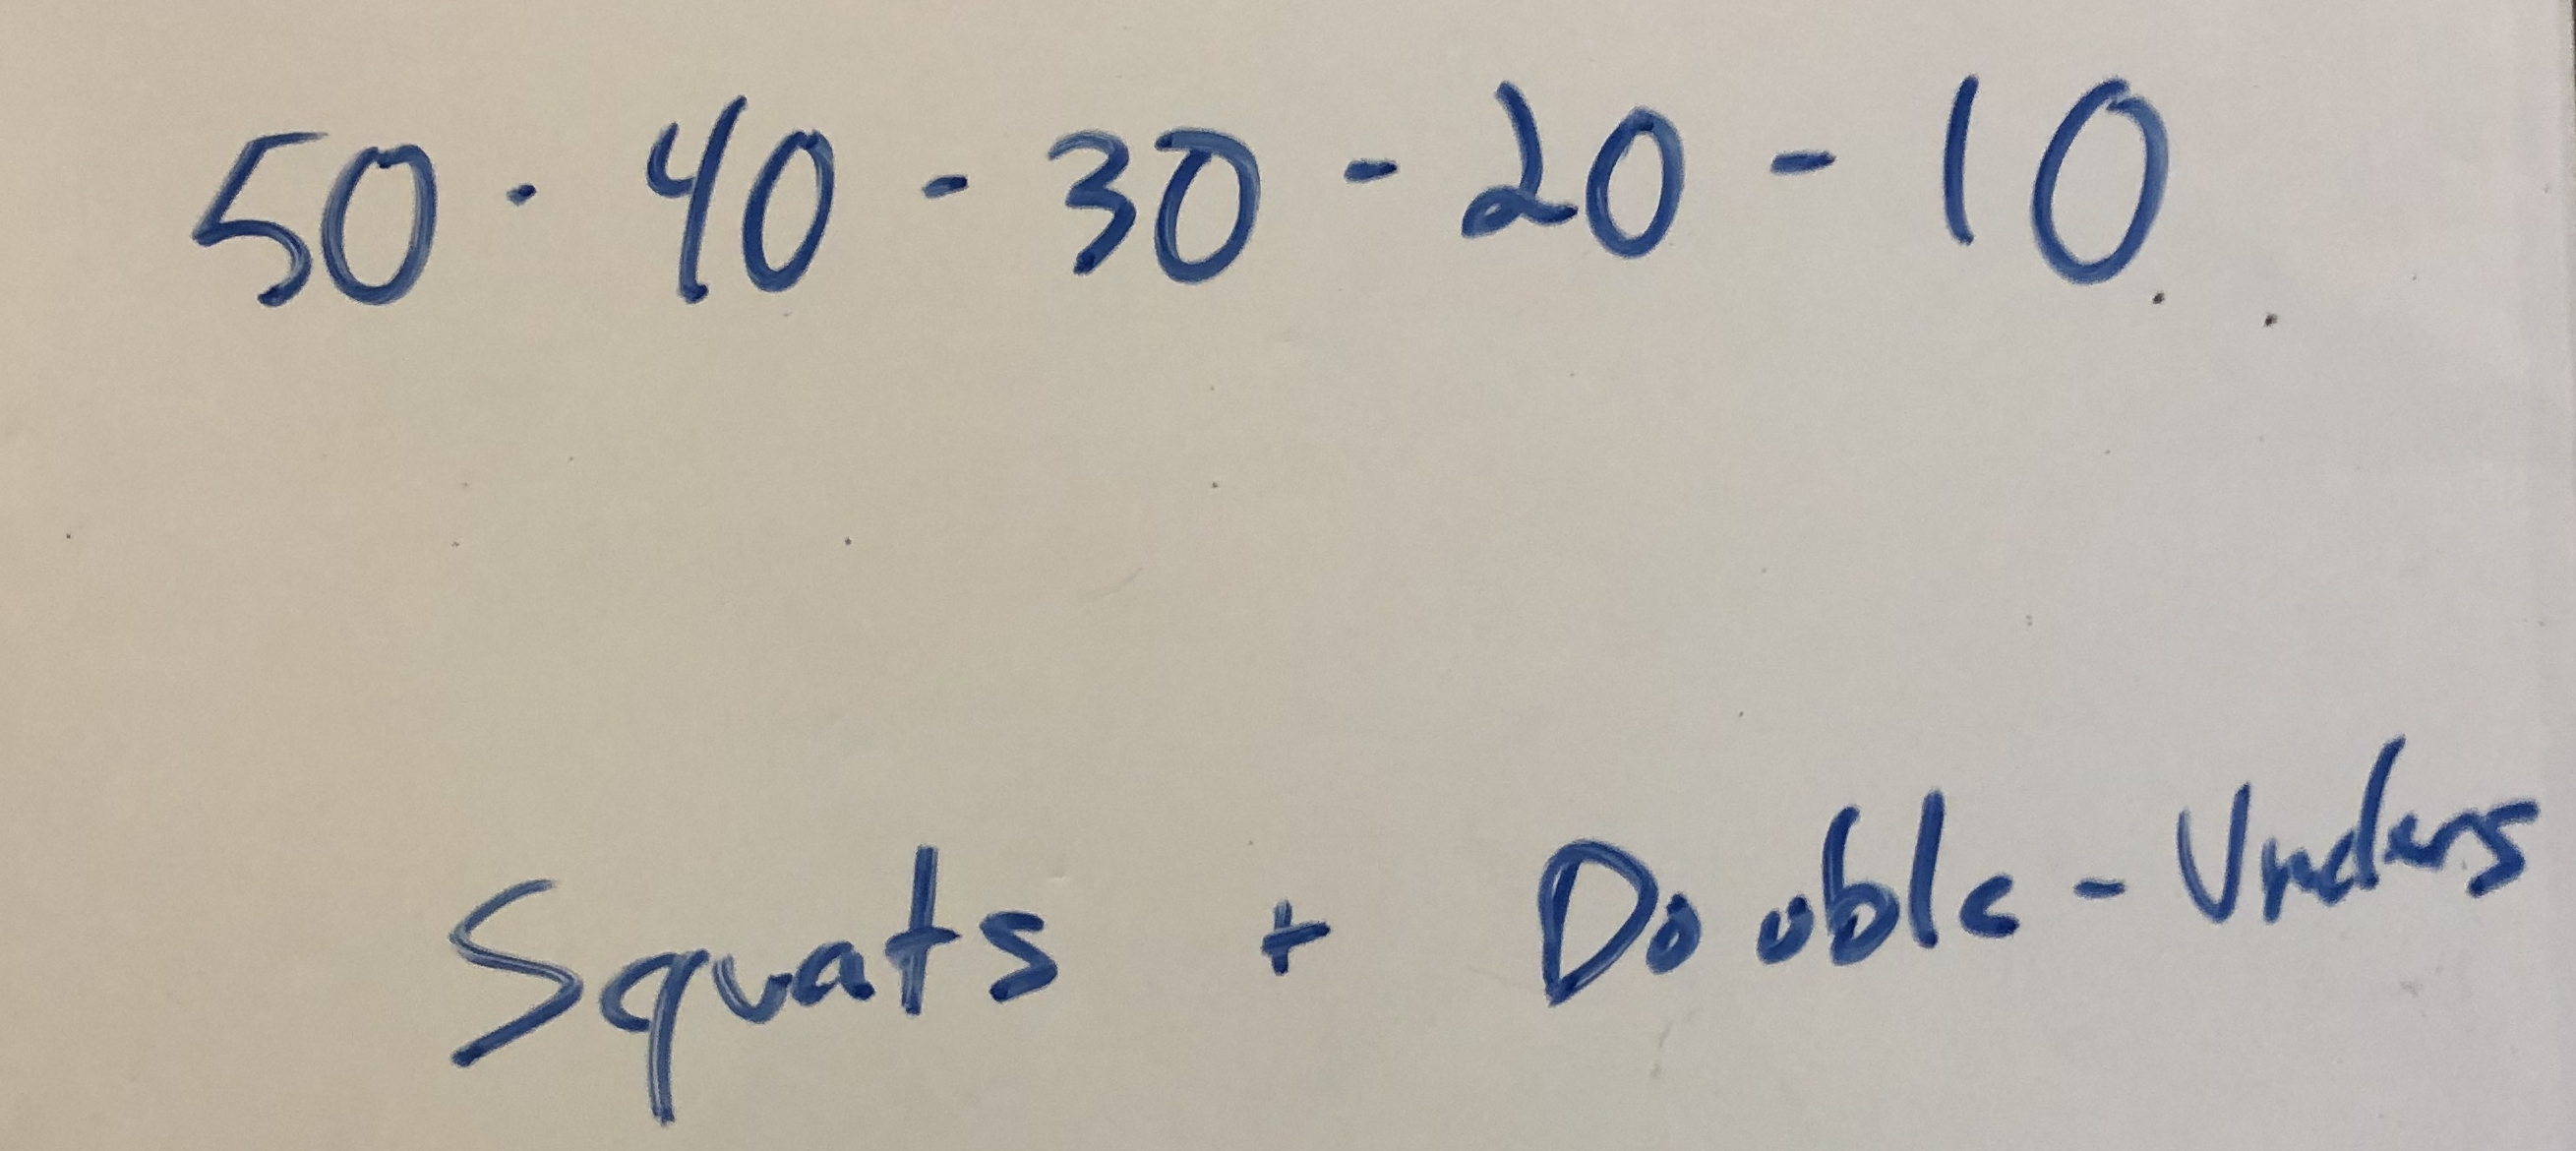 50 - 40 - 30 - 20 - 10
Squats + Double-Unders